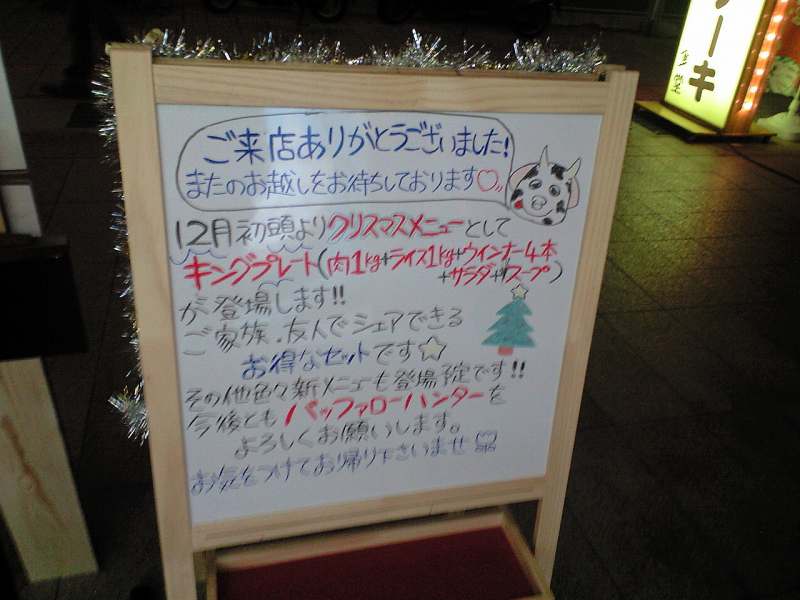 ご来店ありがとうございました!
またのお越しをお待ちしております♡
12月初頭よりクリスマスメニューとして
キングプレート(肉1kg+ライス1kg+ウインナー4本
+サラダ+スープ)
が登場します!!
ご家族、友人でシェアできる
お得なセットです☆
その他色々新メニューも登場予定です!!
今後ともバッファローハンターを
よろしくお願いします。
お気をつけてお帰り下さいませ
ーキ